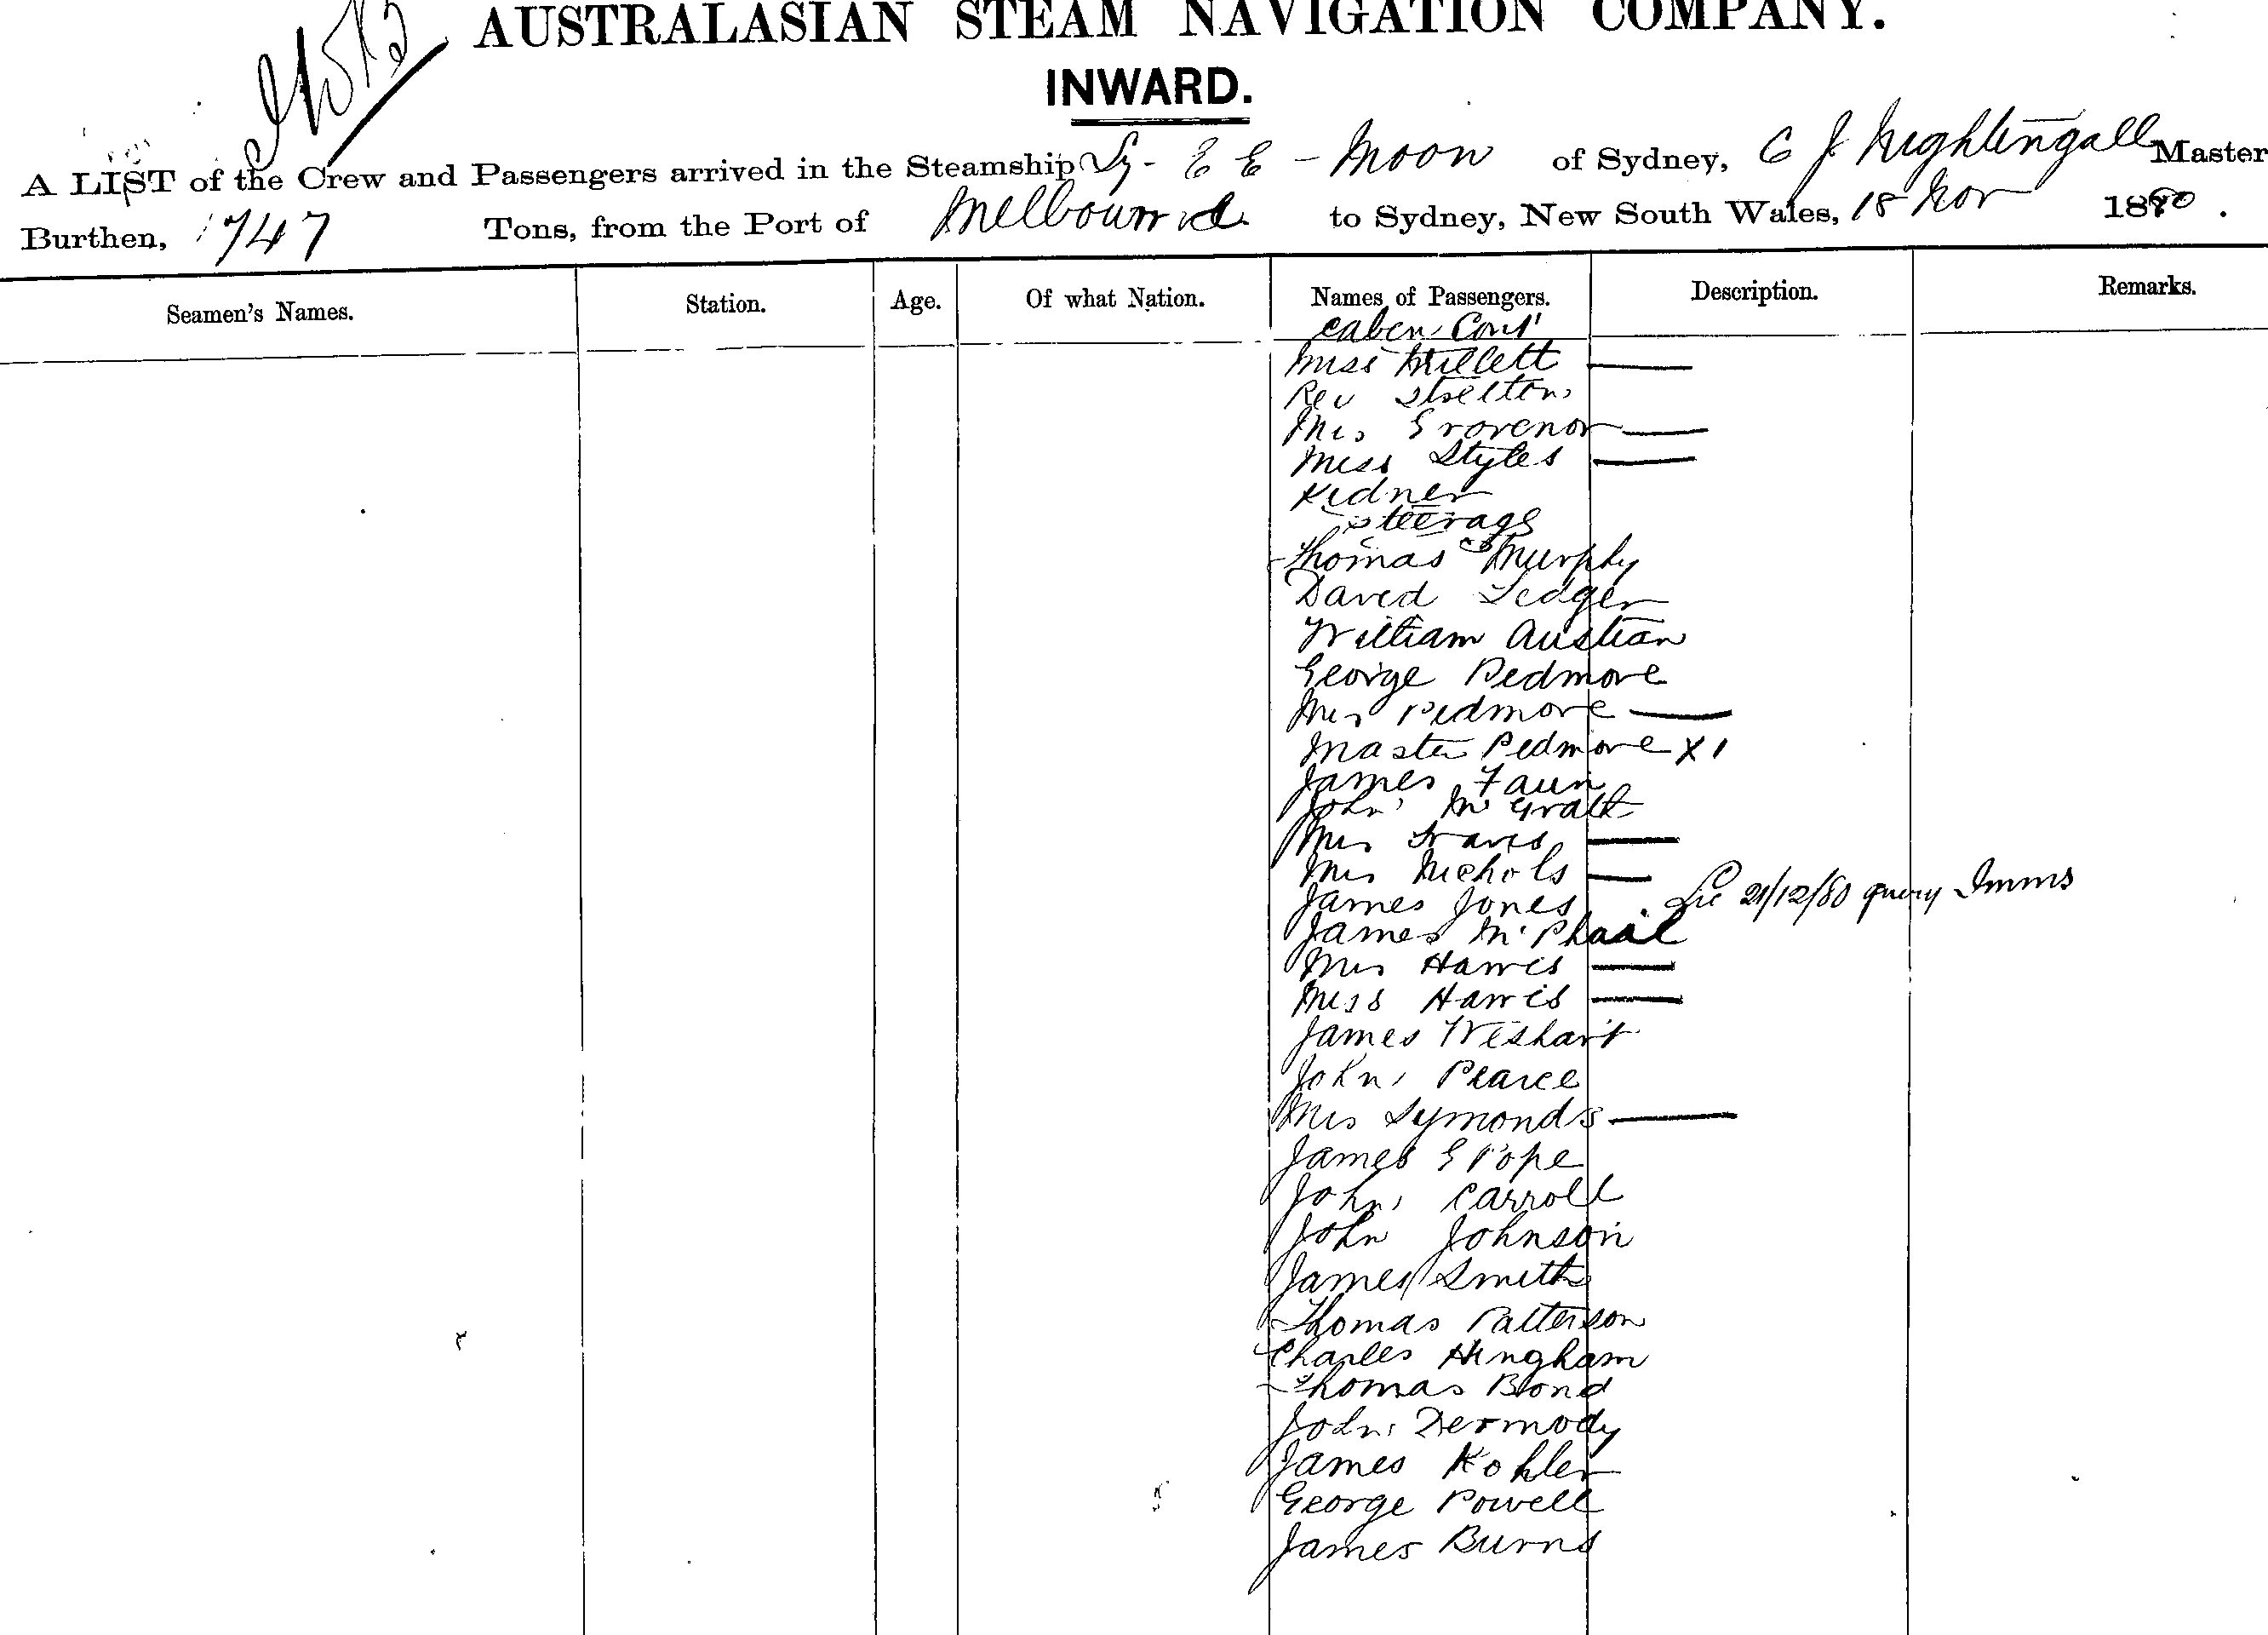 AUSTRALASIAN STEAM NAVIGATION COMPANY.
INWARD.
A LIST of the Crew and Passengers arrived in the Steamship Ly- E E - Moon of Sydney, G J Nightingall Master
Burthen, 1747 Tons, from the Port of Melbourne to Sydney, New South Wales, 18 Nov 1880.
Seamen's Names. Station. Age. Of what Nation. Names of Passengers. Description. Remarks.
Caben Cont'
Miss Millett —
Rev Stretton
Mrs Grovenor —
Miss Styles —
Kidner
Steerage
Thomas Murphy
David Ledger
William Austian
George Pedmore
Mrs Pedmore —
Master Pedmore X 1
James Faun
John McGratt
Mrs Travis —
Mrs Nichols —
James Jones
21/12/80 query Imms
James McPhail
Mrs Harris —
Miss Harris —
James Wishart
John Pearce
Mrs Symonds —
James G Pope
John Carroll
John Johnson
James Smith
Thomas Patterson
Charles Hingham
Thomas Bond
John Dermody
James Kohler
George Powell
James Burns